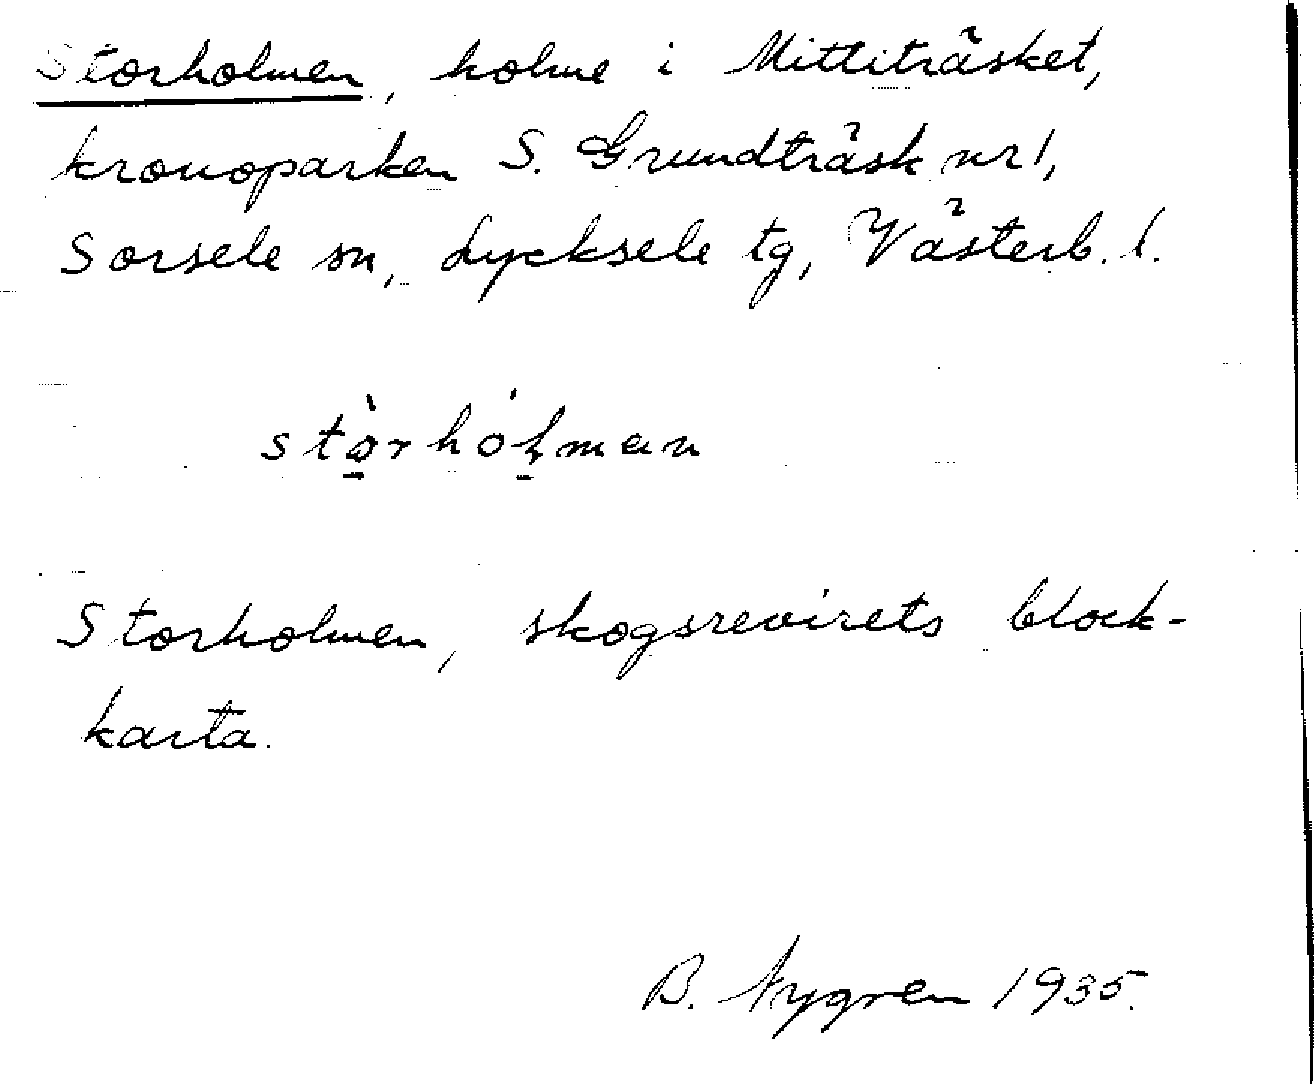 Storholmen, holme i Mittiträsket,
kronoparken S. Grundträsk nr 1,
Sorsele sn, Lycksele tg, Västerb. l.
stò̱rhół̱man
Storholmen, skogsrevirets block-
karta.
B. Nygren 1935.